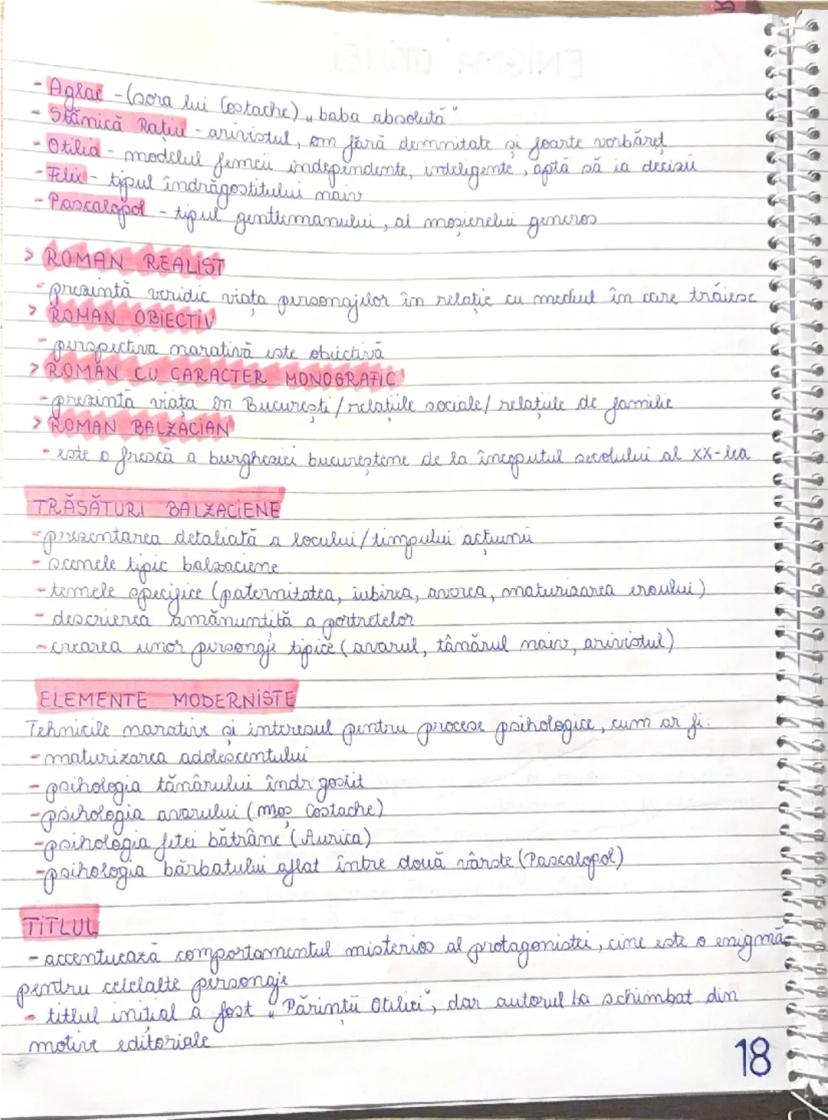 - Aglae - (sora lui Costache) „baba absolută"
- Stănică Rațiu - arivistul, om fără demnitate și foarte vorbăreț
- Otilia - modelul femeii independente, inteligente, aptă să ia decizii
- Felix - tipul îndrăgostitului naiv
- Pascalopol - tipul gentlemanului, al moșierului generos
> ROMAN REALIST
- prezintă veridic viața personajelor în relație cu mediul în care trăiesc
> ROMAN OBIECTIV
- perspectiva narativă este obiectivă
> ROMAN CU CARACTER MONOGRAFIC
- prezintă viața în București / relațiile sociale / relațiile de familie
> ROMAN BALZACIAN
- este o frescă a burgheziei bucureștene de la începutul secolului al XX-lea
TRĂSĂTURI BALZACIENE
- prezentarea detaliată a locului / timpului acțiunii
- scenele tipic balzaciene
- temele specifice (paternitatea, iubirea, averea, maturizarea eroului)
- descrierea amănunțită a portretelor
- crearea unor personaje tipice (avarul, tânărul naiv, arivistul)
ELEMENTE MODERNISTE
Tehnicile narative și interesul pentru procese psihologice, cum ar fi:
- maturizarea adolescentului
- psihologia tânărului îndrgostit
- psihologia avarului (moș Costache)
- psihologia fetei bătrâne (Aurica)
- psihologia bărbatului aflat între două vârste (Pascalopol)
TITLUL
- accentuează comportamentul misterios al protagonistei, cine este o enigmă
pentru celelalte personaje
- titlul inițial a fost „Părinții Otiliei", dar autorul l-a schimbat din
motive editoriale
18